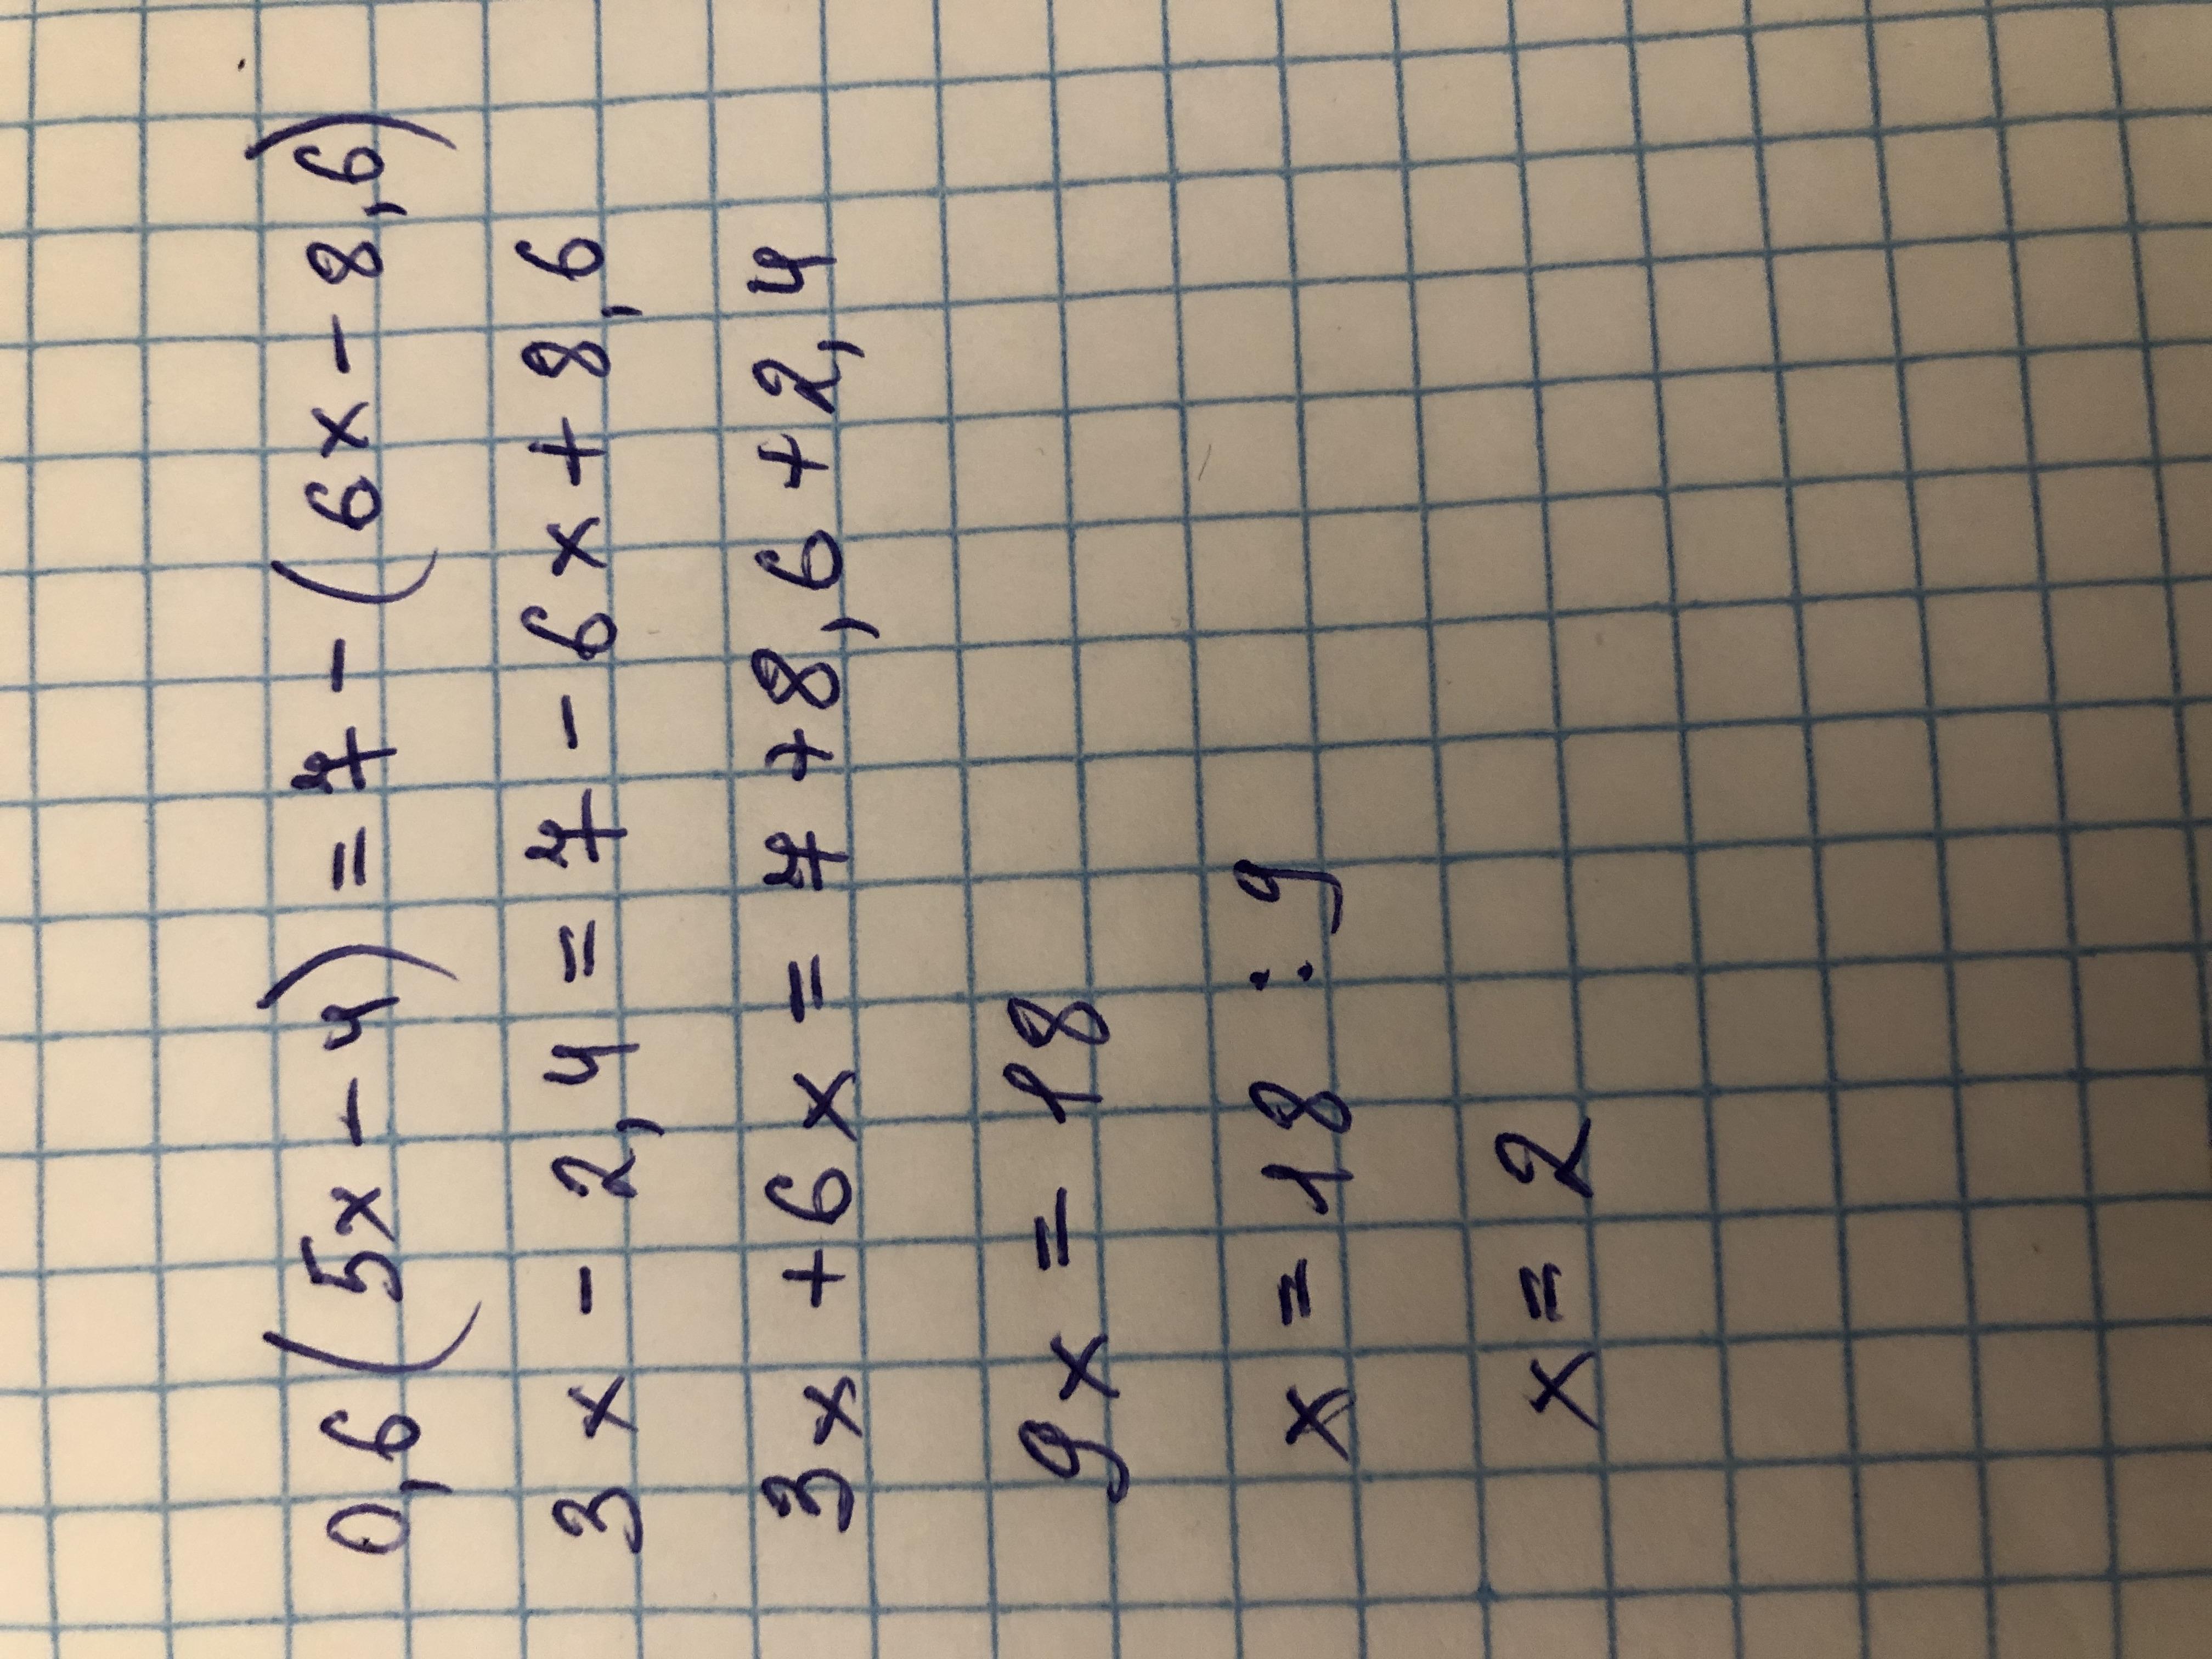 0,6(5x-4)=7-(6x-8,6)
3x-2,4=7-6x+8,6
3x+6x=7+8,6+2,4
9x=18
x=18:9
x=2